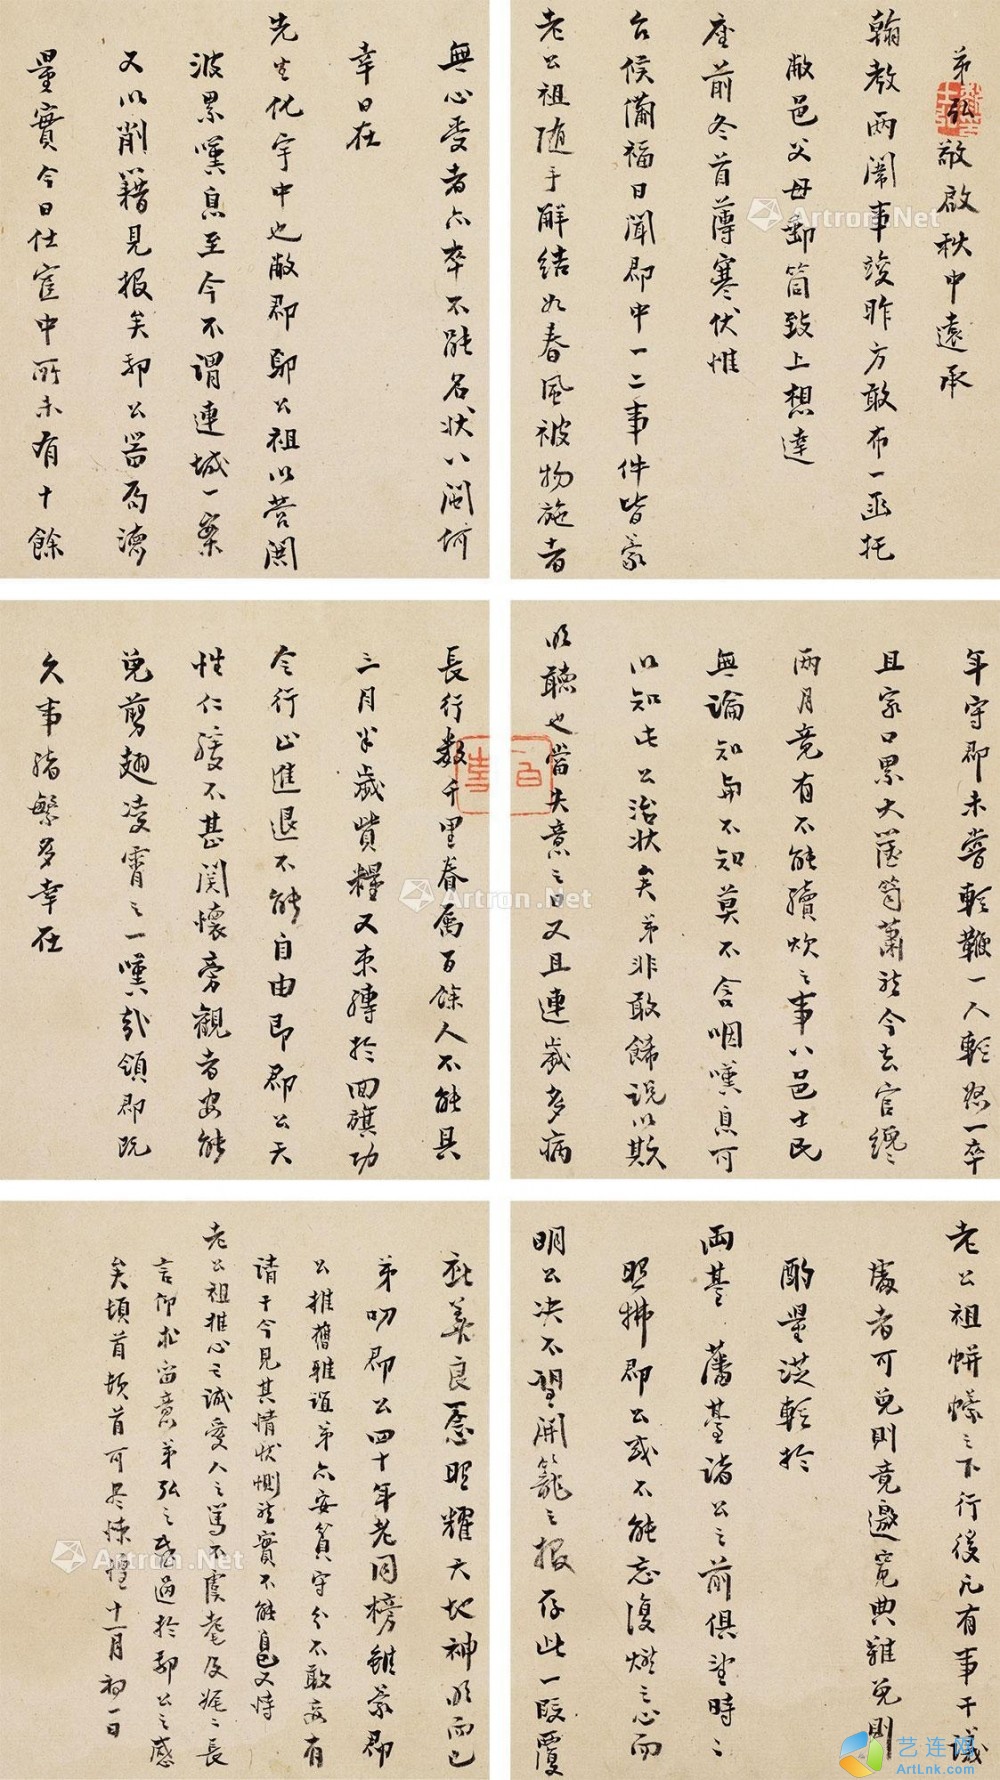 弟弘敬啟秋中遠承
翰教兩闈事竣昨方敢布一函托
敝邑父母郵筒致上想達
座前冬首薄寒伏惟
台候萬福日聞郡中一二事件皆蒙
老公祖隨手解結如春風被物施者
無心受者亦卒不能名狀八閩何
幸日在
先生化宇中也敝郡鄭公祖以營閑
波累嘆息至今不謂連城一案
又以削籍見报矣郡公器局濟
量實今日仕宦中所未有十餘
年守郡未嘗輕鞭一人輕怒一卒
且家口累大蓋簡蕭然今去官纔
兩月竟有不能續炊之事八邑士民
無論知與不知莫不含咽嘆息可
以知此公治状矣弟非敢飾說以欺
明聽也當失意之日又且連歲多病
長行數千里眷属百餘人不能具
三月半歲貲糧又束縛於回旗功
令行止進退不能自由即郡公天
性仁緩不甚関懷旁觀者安能
免剪翅凌霄之一嘆哉領郡既
久事緒繁多幸在
老公祖帡幪之下行後凡有事干議
處者可免則竟邀寬典難免則
酌量從輕於
兩臺 藩臺諸公之前俱望時時
照拂郡公或不能忘復燃之心而
明公决不望開籠之报存此一段覆
庇善良意照耀天地神明而已
弟叨郡公四十年老同榜雖蒙郡
公推舊雅誼弟亦安貧守分不敢妄有
請干今見其情状惻然實不能自已又恃
老公祖推心之誠愛人之篤不虞耄及娓娓長
言仰求留意弟弘之感過於郡公之感
矣頓首頓首可尽悚惶十一月初一日
Artron.Net
Artron.Net
Artron.Net
艺连网
ArtLnk.com